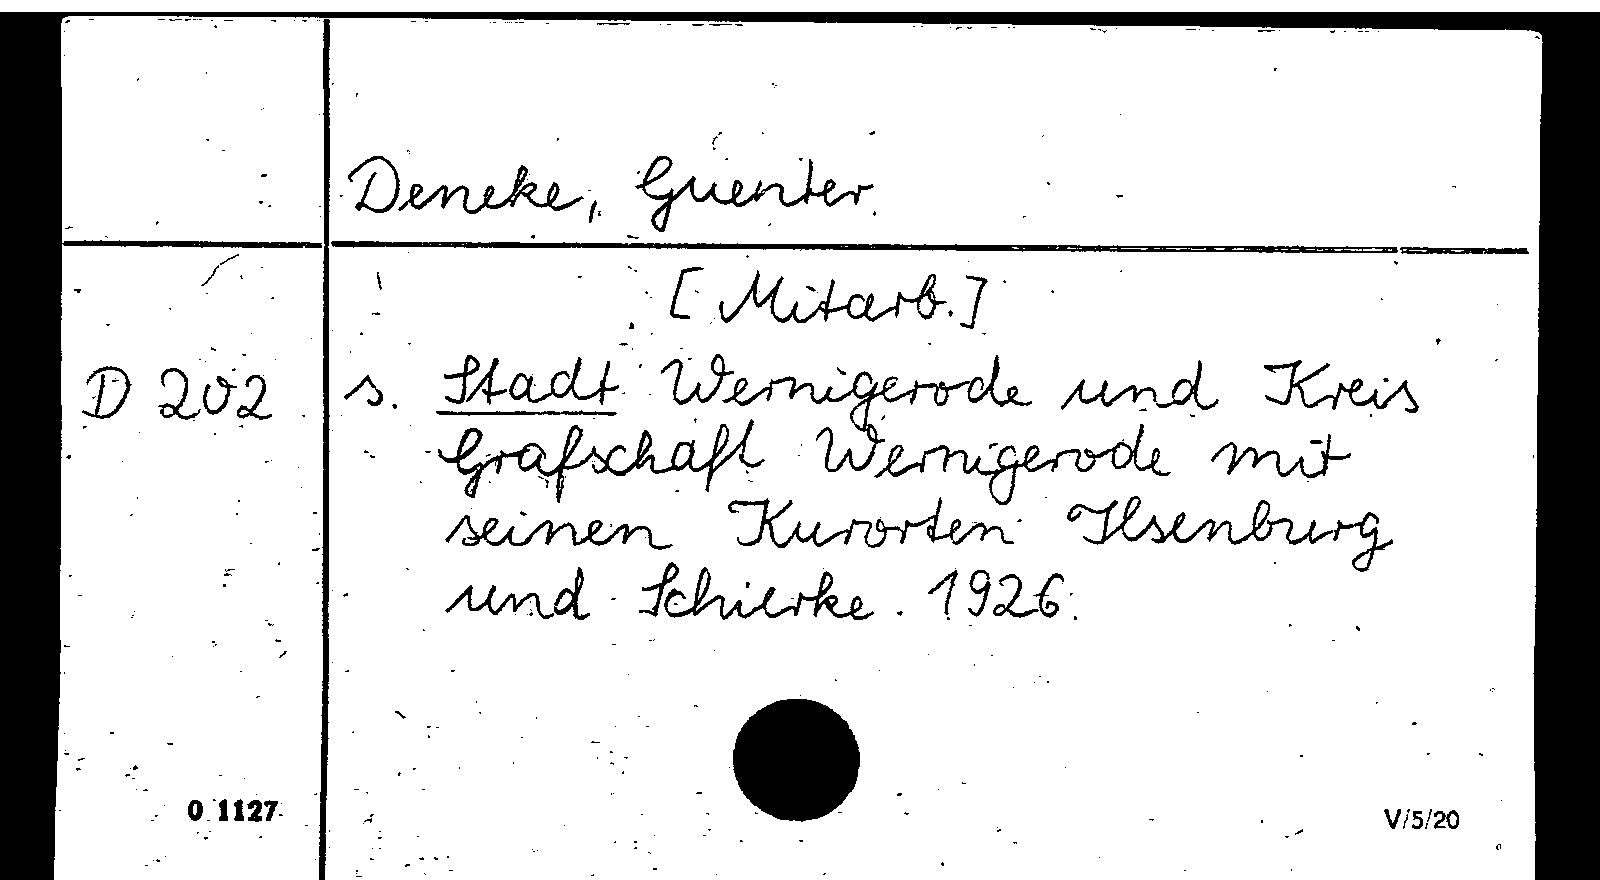 Deneke, Guenter
[Mitarb.]
D 202 s. Stadt Wernigerode und Kreis
Grafschaft Wernigerode mit
seinen Kurorten Ilsenburg
und Schierke. 1926.
0 1127
V/5/20